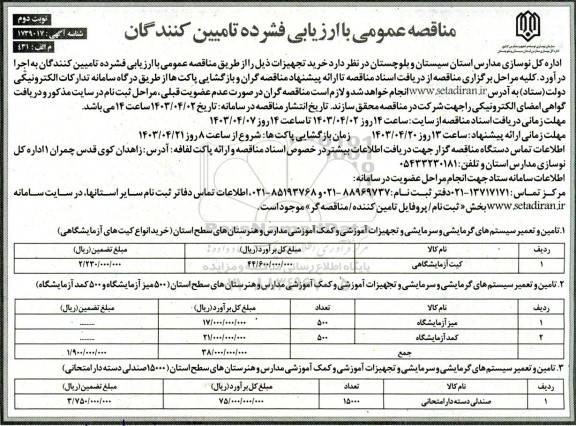 نوبت دوم
شناسه آگهی: ۱۷۳۹۰۱۷
م الف: ۴۳۱
مناقصه عمومی با ارزیابی فشرده تامیین کنندگان
اداره کل نوسازی مدارس استان سیستان و بلوچستان در نظر دارد خرید تجهیزات ذیل را از طریق مناقصه عمومی با ارزیابی فشرده تامیین کنندگان به اجرا
در آورد. کلیه مراحل برگزاری مناقصه از دریافت اسناد مناقصه تا ارائه پیشنهاد مناقصه گران و بازگشایی پاکت ها از طریق درگاه سامانه تدارکات الکترونیکی
دولت (ستاد) به آدرس www.setadiran.ir انجام خواهد شد و لازم است مناقصه گران در صورت عدم عضویت قبلی، مراحل ثبت نام در سایت مذکور و دریافت
گواهی امضای الکترونیکی را جهت شرکت در مناقصه محقق سازند. تاریخ انتشار مناقصه در سامانه: تاریخ ۱۴۰۳/۰۴/۰۲ ساعت ۱۴ می باشد.
مهلت زمانی دریافت اسناد مناقصه از سایت: ساعت ۱۴ روز ۱۴۰۳/۰۴/۰۲ تا ساعت ۱۴ روز ۱۴۰۳/۰۴/۰۷
مهلت زمانی ارائه پیشنهاد: ساعت ۱۳ روز ۱۴۰۳/۰۴/۲۰ زمان بازگشایی پاکت ها: شروع از ساعت ۸ روز ۱۴۰۳/۰۴/۲۱
اطلاعات تماس دستگاه مناقصه گزار جهت دریافت اطلاعات بیشتر در خصوص اسناد مناقصه و ارائه پاکت لفافه: آدرس: زاهدان کوی قدس چمران ۱ اداره کل
نوسازی مدارس استان و تلفن: ۰۵۴۳۳۲۳۰۱۸۱
اطلاعات سامانه ستاد جهت انجام مراحل عضویت در سامانه:
مرکز تماس: ۱۳۷۱۷۱۷۱-۰۲۱ دفتر ثبت نام: ۸۸۹۶۹۷۳۷-۰۲۱ و ۸۵۱۹۳۷۶۸-۰۲۱. اطلاعات تماس دفاتر ثبت نام سایر استانها، در سایت سامانه
www.setadiran.ir بخش «ثبت نام/ پروفایل تامین کننده/ مناقصه گر» موجود است.
۱. تامین و تعمیر سیستم های گرمایشی و سرمایشی و تجهیزات آموزشی و کمک آموزشی مدارس و هنرستان های سطح استان (خرید انواع کیت های آزمایشگاهی)
ردیف نام کالا مبلغ کل برآورد (ریال) مبلغ تضمین (ریال)
۱ کیت آزمایشگاهی ۴۴/۶۰۰/۰۰۰/۰۰۰ ۲/۲۳۰/۰۰۰/۰۰۰
۲. تامین و تعمیر سیستم های گرمایشی و سرمایشی و تجهیزات آموزشی و کمک آموزشی مدارس و هنرستان های سطح استان (۵۰۰ میز آزمایشگاه و ۵۰۰ کمد آزمایشگاه)
ردیف نام کالا تعداد مبلغ کل برآورد (ریال) مبلغ تضمین (ریال)
۱ میز آزمایشگاه ۵۰۰ ۱۷/۰۰۰/۰۰۰/۰۰۰ ------
۲ کمد آزمایشگاه ۵۰۰ ۲۱/۰۰۰/۰۰۰/۰۰۰ ------
جمع ۳۸/۰۰۰/۰۰۰/۰۰۰ ۱/۹۰۰/۰۰۰/۰۰۰
۳. تامین و تعمیر سیستم های گرمایشی و سرمایشی و تجهیزات آموزشی و کمک آموزشی مدارس و هنرستان های سطح استان (۱۵۰۰۰ صندلی دسته دار امتحانی)
ردیف نام کالا تعداد مبلغ کل برآورد (ریال) مبلغ تضمین (ریال)
۱ صندلی دسته دار امتحانی ۱۵۰۰۰ ۷۵/۰۰۰/۰۰۰/۰۰۰ ۳/۷۵۰/۰۰۰/۰۰۰